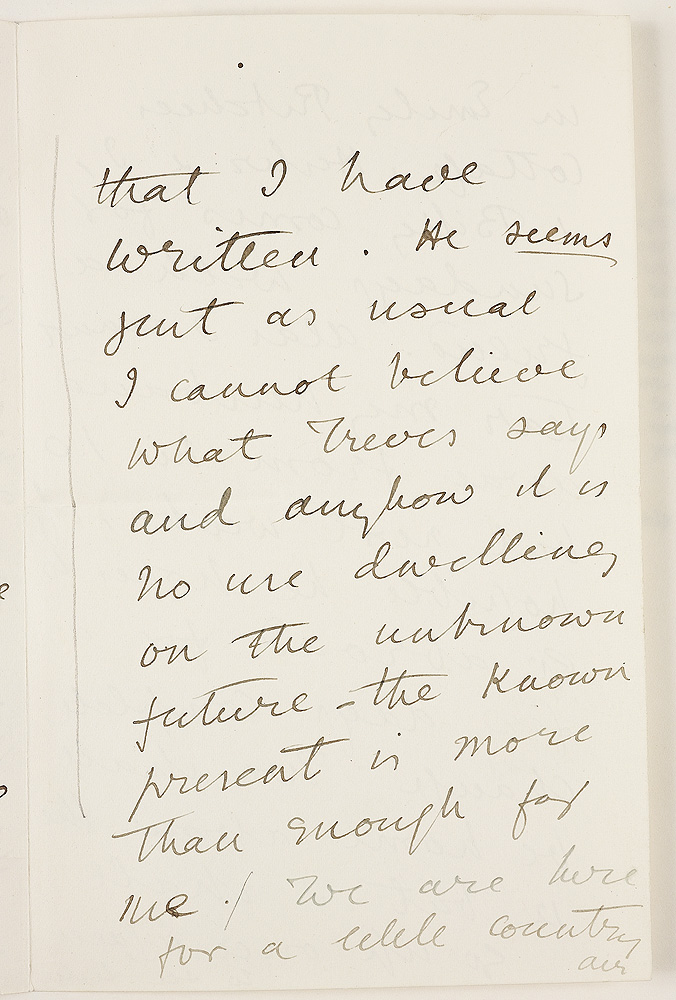 that I have
written. He seems
just as usual
I cannot believe
what Treves says
and anyhow it is
no use dwelling
on the unknown
future - the known
present is more
than enough for
me / We are here
for a little country
air